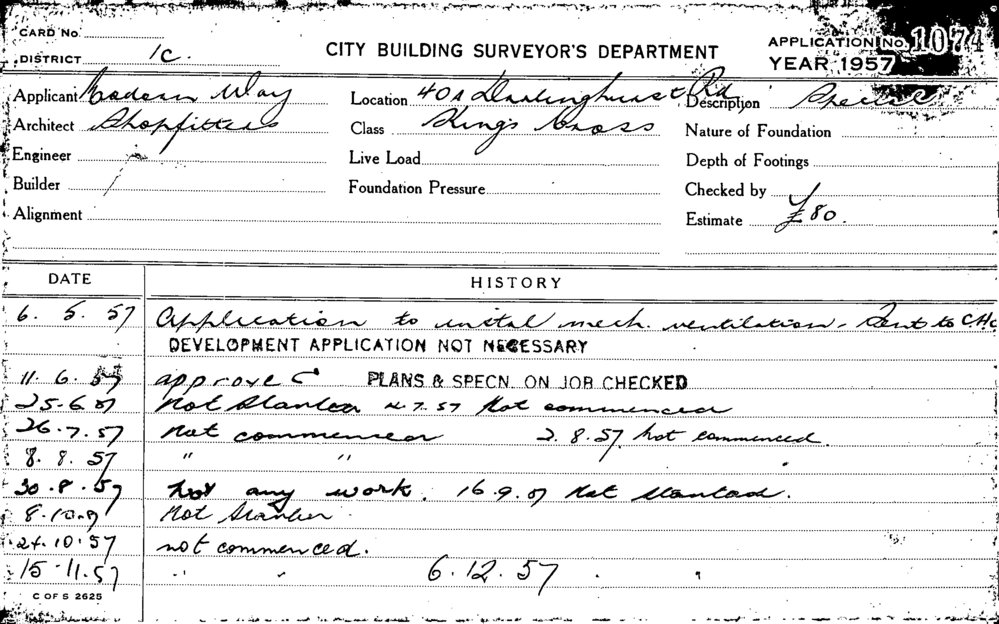 CARD No.
DISTRICT 1C.
CITY BUILDING SURVEYOR'S DEPARTMENT
APPLICATION No. 1074
YEAR 1957
Applicant Modern Way Location 40A Darlinghurst Rd Description Specl
Architect Shopfitters Class Kings Cross Nature of Foundation
Engineer Live Load Depth of Footings
Builder Foundation Pressure Checked by
Alignment Estimate £80.
DATE HISTORY
6. 5. 57 Application to instal mech. ventilation - Sent to
DEVELOPMENT APPLICATION NOT NECESSARY
11. 6. 57 approve C PLANS & SPECN. ON JOB CHECKED
25.6.57 Not Started 4.7.57 Not commenced
26.7.57 Not commenced 2.8.57 not commenced.
8. 8. 57 " "
30.8.57 Not any work. 16.9.57 Not started.
8.10.57 Not Started.
24.10.57 not commenced.
15.11.57 " " 6.12.57 . "
C OF S 2625